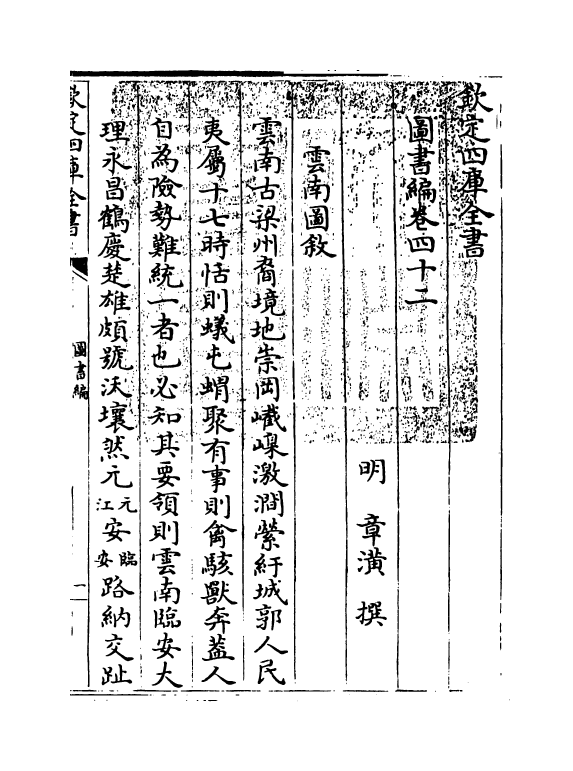 欽定四庫全書
圖書編卷四十二
明 章潢 撰
雲南圖敘
雲南古梁州裔境地崇岡巇嵲激澗縈紆城郭人民
夷屬十七時恬則蟻屯蝟聚有事則禽駭獸奔蓋人
自為險勢難統一者也必知其要領則雲南臨安大
理永昌鶴慶楚雄頗號沃壤然元元江安臨安路納交趾
欽定四庫全書
圖書編
一